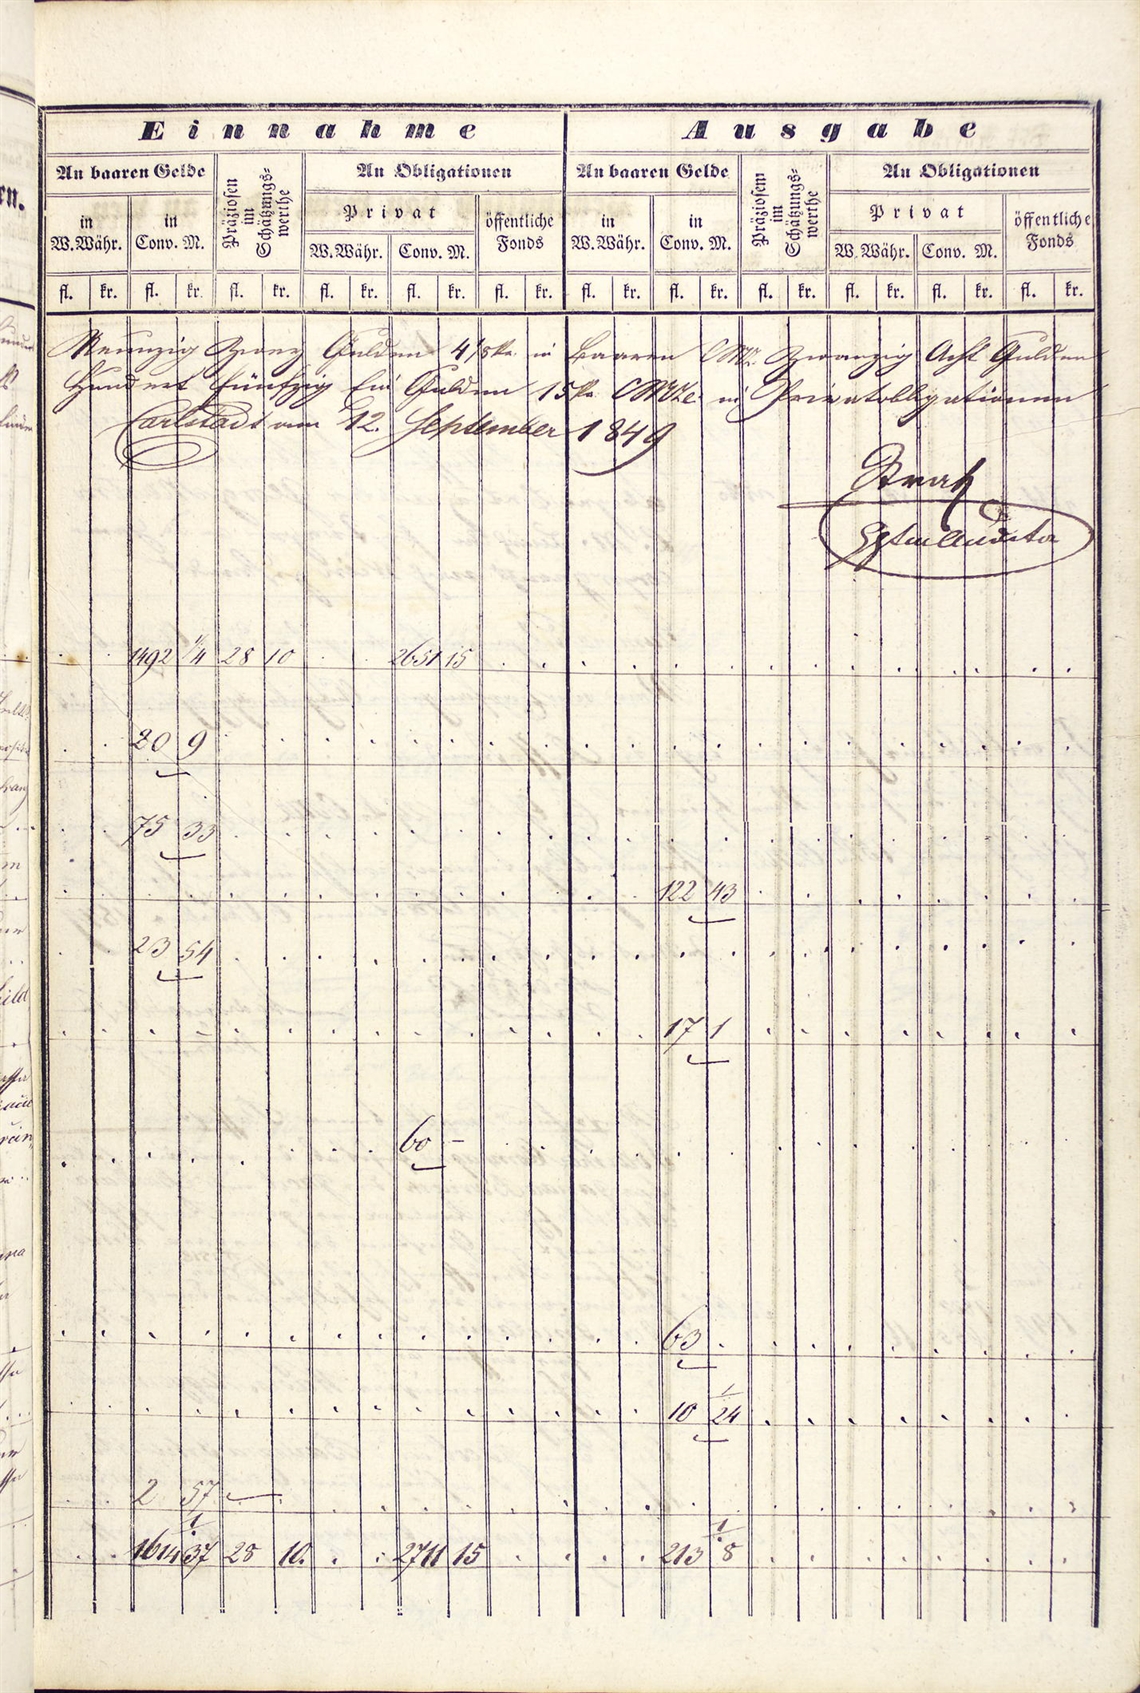 Einnahme Ausgabe
An baaren Gelde Präziosen im Schätzungs-werthe An Obligationen An baaren Gelde Präziosem im Schätzungs-werthe An Obligationen
Privat öffentliche Fonds Privat öffentliche Fonds
in W.Währ. in Conv. M. W.Währ. Conv. M. in W.Währ. in Conv. M. W.Währ. Conv. M.
fl. kr. fl. kr. fl. kr. fl. kr. fl. kr. fl. kr. fl. kr. fl. kr. fl. kr. fl. kr. fl. kr. fl. kr.
Neunzig Zwey Gulden 4 1/8 kr. in baaren CMz Zwanzig Acht Gulden
Hundert fünfzig Ein Gulden 15 kr. CMze in Privatobligationen
Carlstadt am 12. September 1849
Strah
Auditor
1492 28 10 2651 15
20 9
75 33
122 43
23 54
17 1
60 –
63 .
10 24
2 57
1614 37 28 10. 2711 15 213 8